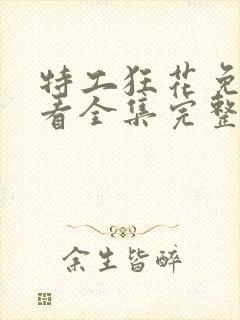 特工狂花免
看全集完整
余生皆醉